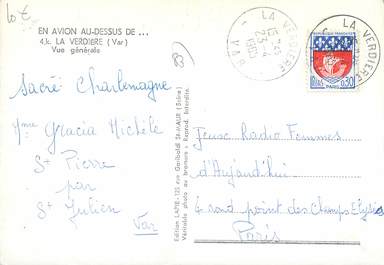 10 €
EN AVION AU-DESSUS DE ...
4.k. LA VERDIERE (Var)
Vue générale
83
LA VERDIERE
LA VERDIERE
REPUBLIQUE FRANÇAISE
POSTES 0,30
PARIS
Sacré Charlemagne
Mme Gracia Michèle
St Pierre
par
St Julien
Var
Edition LAPIE-125 rue Garibaldi St-MAUR (Seine)
Véritable photo au bromure - Reprod. Interdite
Jeux Radio Femmes
d'Aujourd'hui
4 rond point des Champs Elysées
Paris